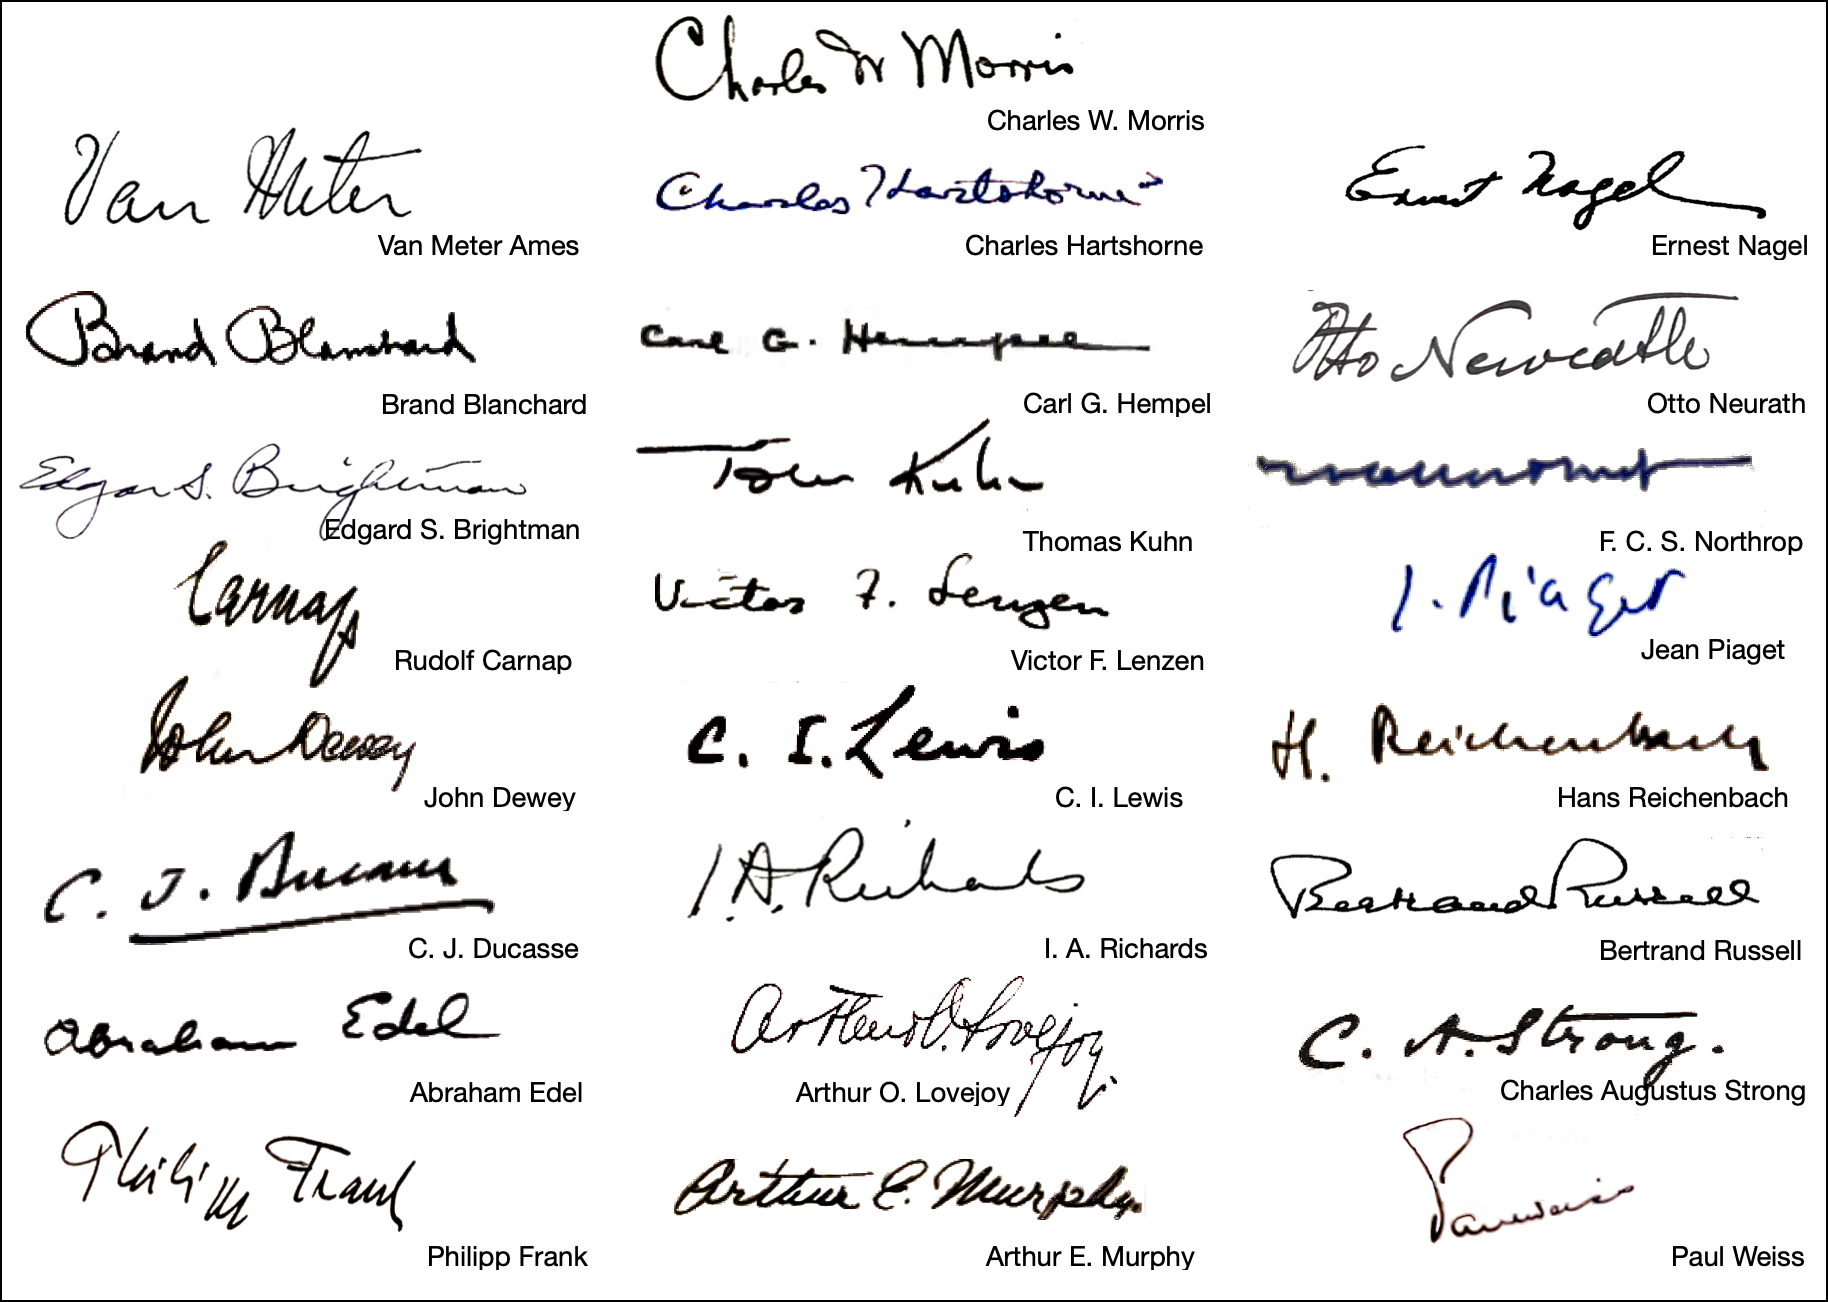 Charles W Morris
Charles W. Morris
Van Meter
Van Meter Ames
Charles Hartshorne
Charles Hartshorne
Ernest Nagel
Ernest Nagel
Brand Blanshard
Brand Blanchard
Carl G. Hempel
Carl G. Hempel
Otto Neurath
Otto Neurath
Edgar S. Brightman
Edgard S. Brightman
Tom Kuhn
Thomas Kuhn
F. C. S. Northrop
Carnap
Rudolf Carnap
Victor F. Lenzen
Victor F. Lenzen
J. Piaget
Jean Piaget
John Dewey
John Dewey
C. I. Lewis
C. I. Lewis
H. Reichenbach
Hans Reichenbach
C. J. Ducasse
C. J. Ducasse
I. A. Richards
I. A. Richards
Bertrand Russell
Bertrand Russell
Abraham Edel
Abraham Edel
Arthur O. Lovejoy.
Arthur O. Lovejoy
C. A. Strong.
Charles Augustus Strong
Philipp Frank
Philipp Frank
Arthur E. Murphy.
Arthur E. Murphy
Paul Weiss
Paul Weiss